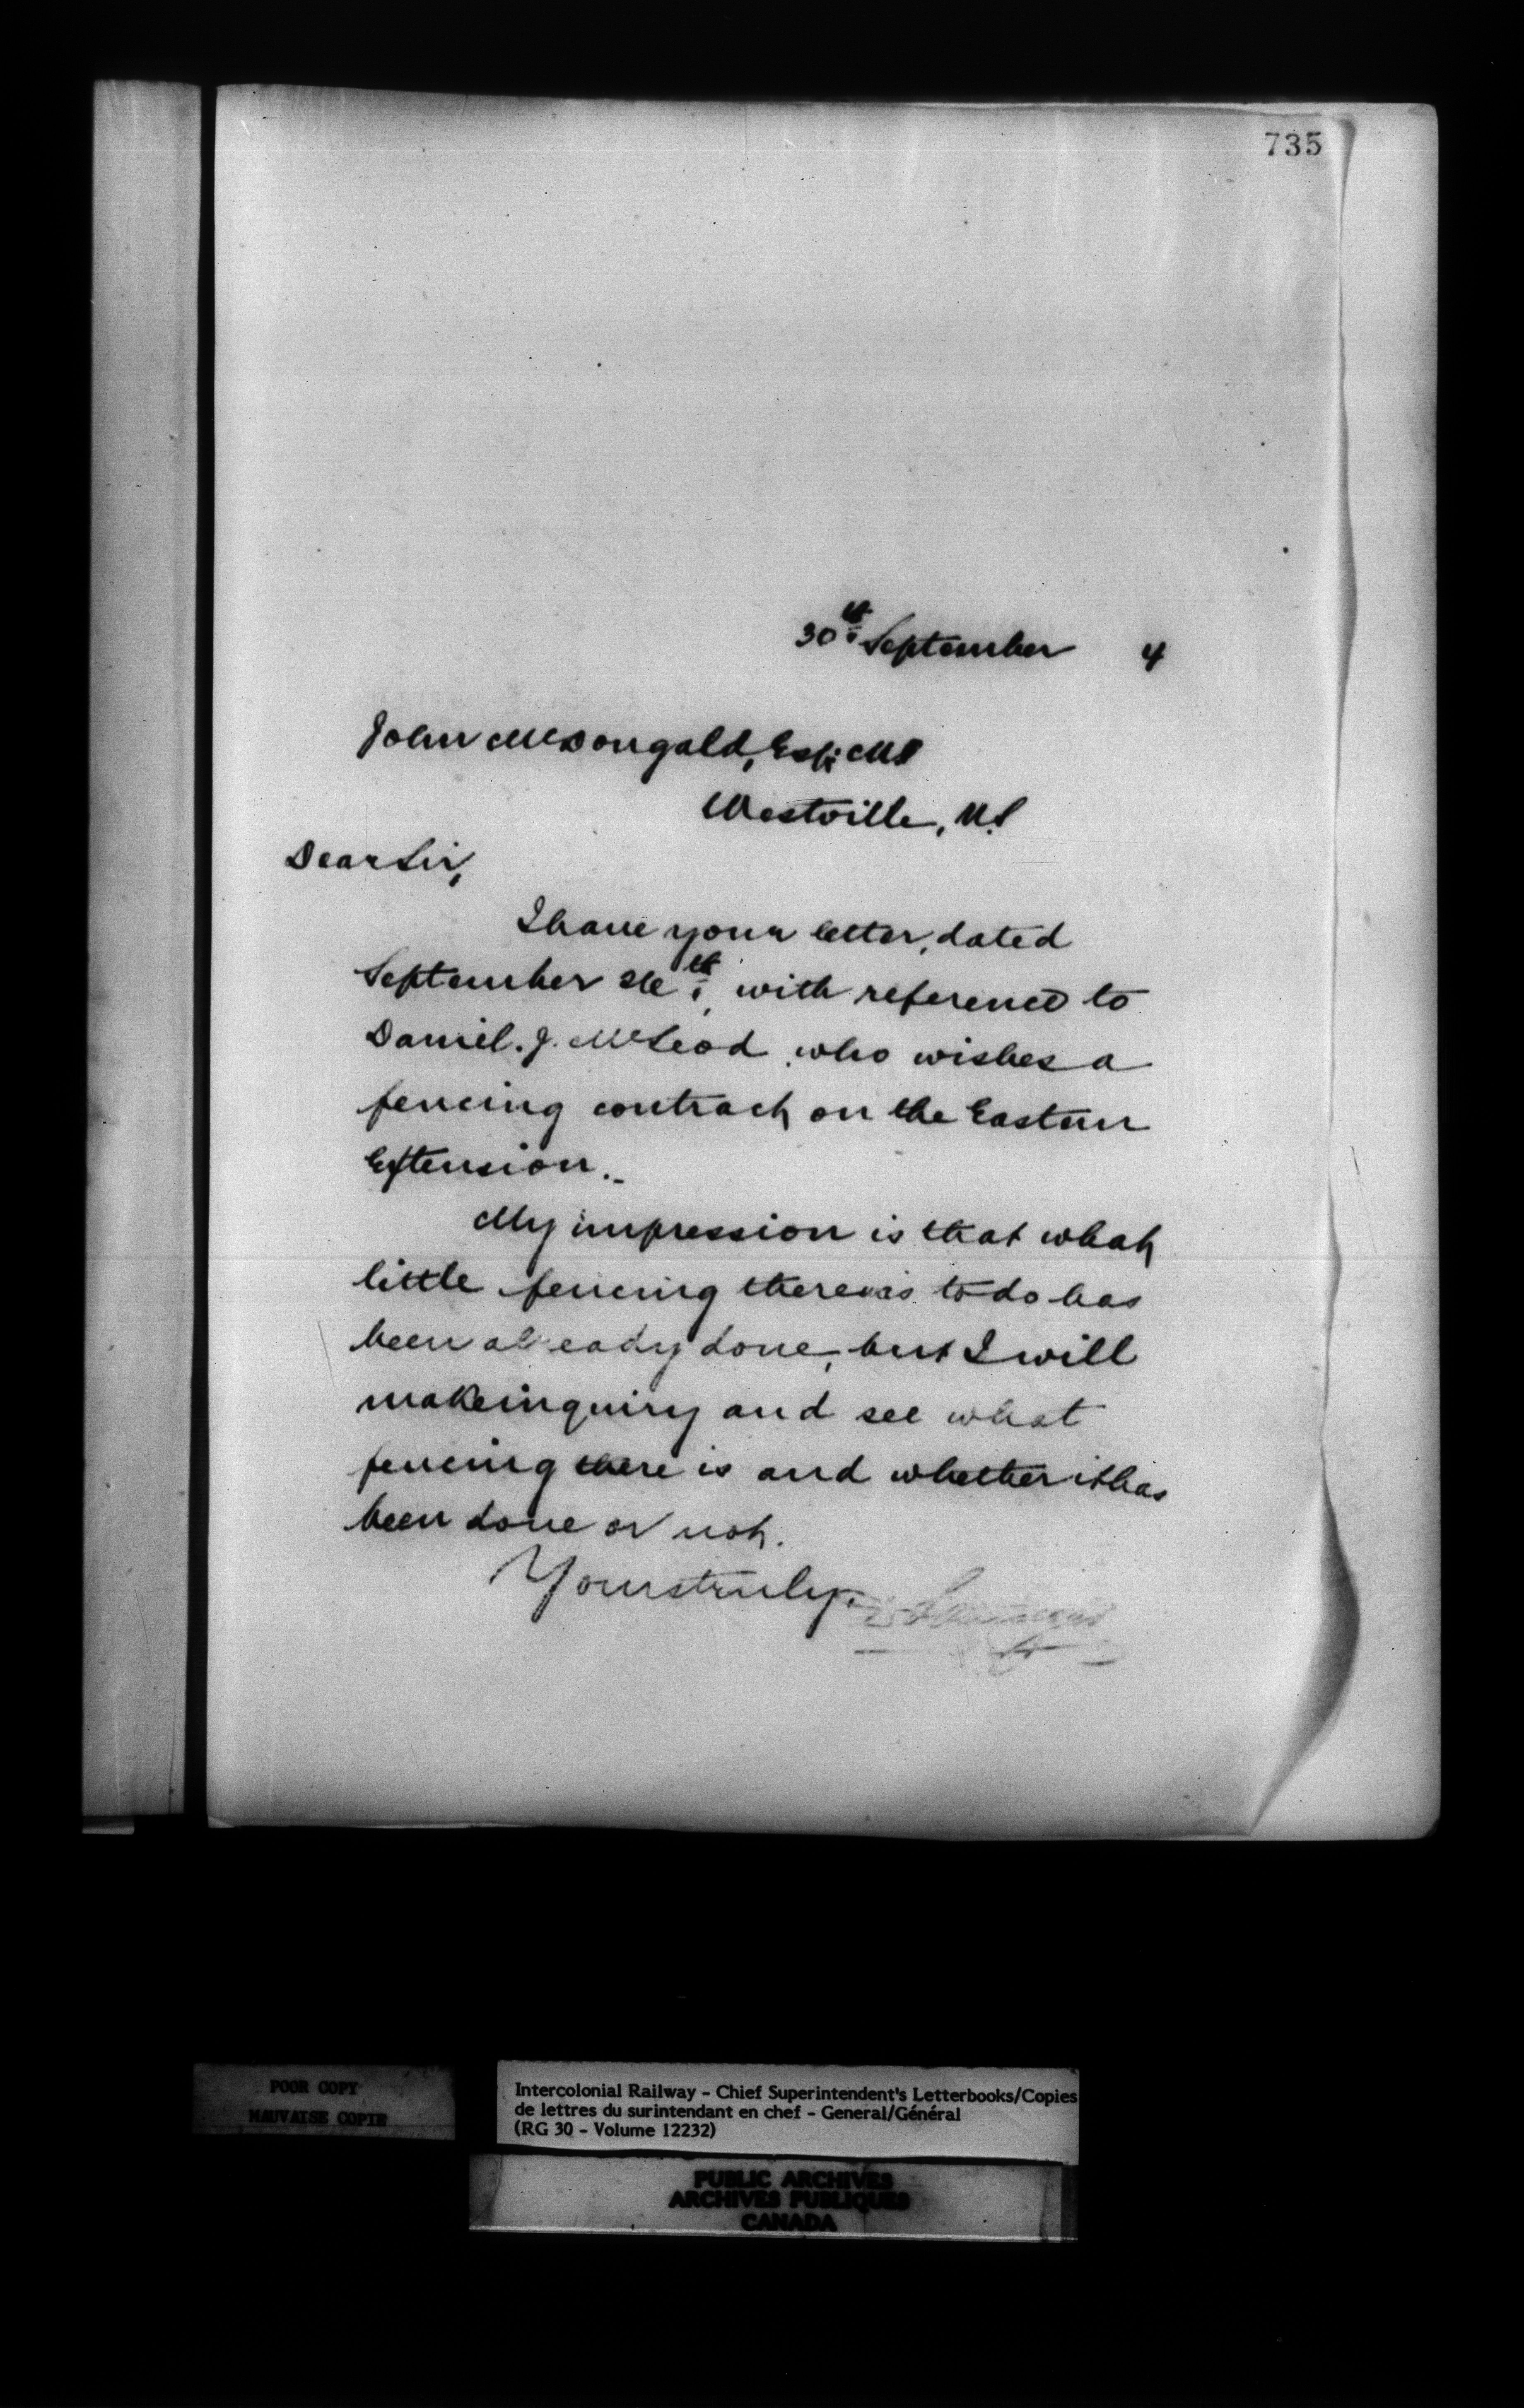 735
30th September 4
John McDougald, Esq; MP
Westville, N.S
Dear Sir,
I have your letter, dated
September 26th, with reference to
Daniel. J. McLeod who wishes a
fencing contract on the Eastern
Extension.
My impression is that what
little fencing there was to do has
been already done, but I will
make inquiry and see what
fencing there is and whether it has
been done or not.
Yours truly,
POOR COPY
MAUVAISE COPIE
Intercolonial Railway - Chief Superintendent's Letterbooks/Copies
de lettres du surintendant en chef - General/Général
(RG 30 - Volume 12232)
PUBLIC ARCHIVES
ARCHIVES PUBLIQUES
CANADA